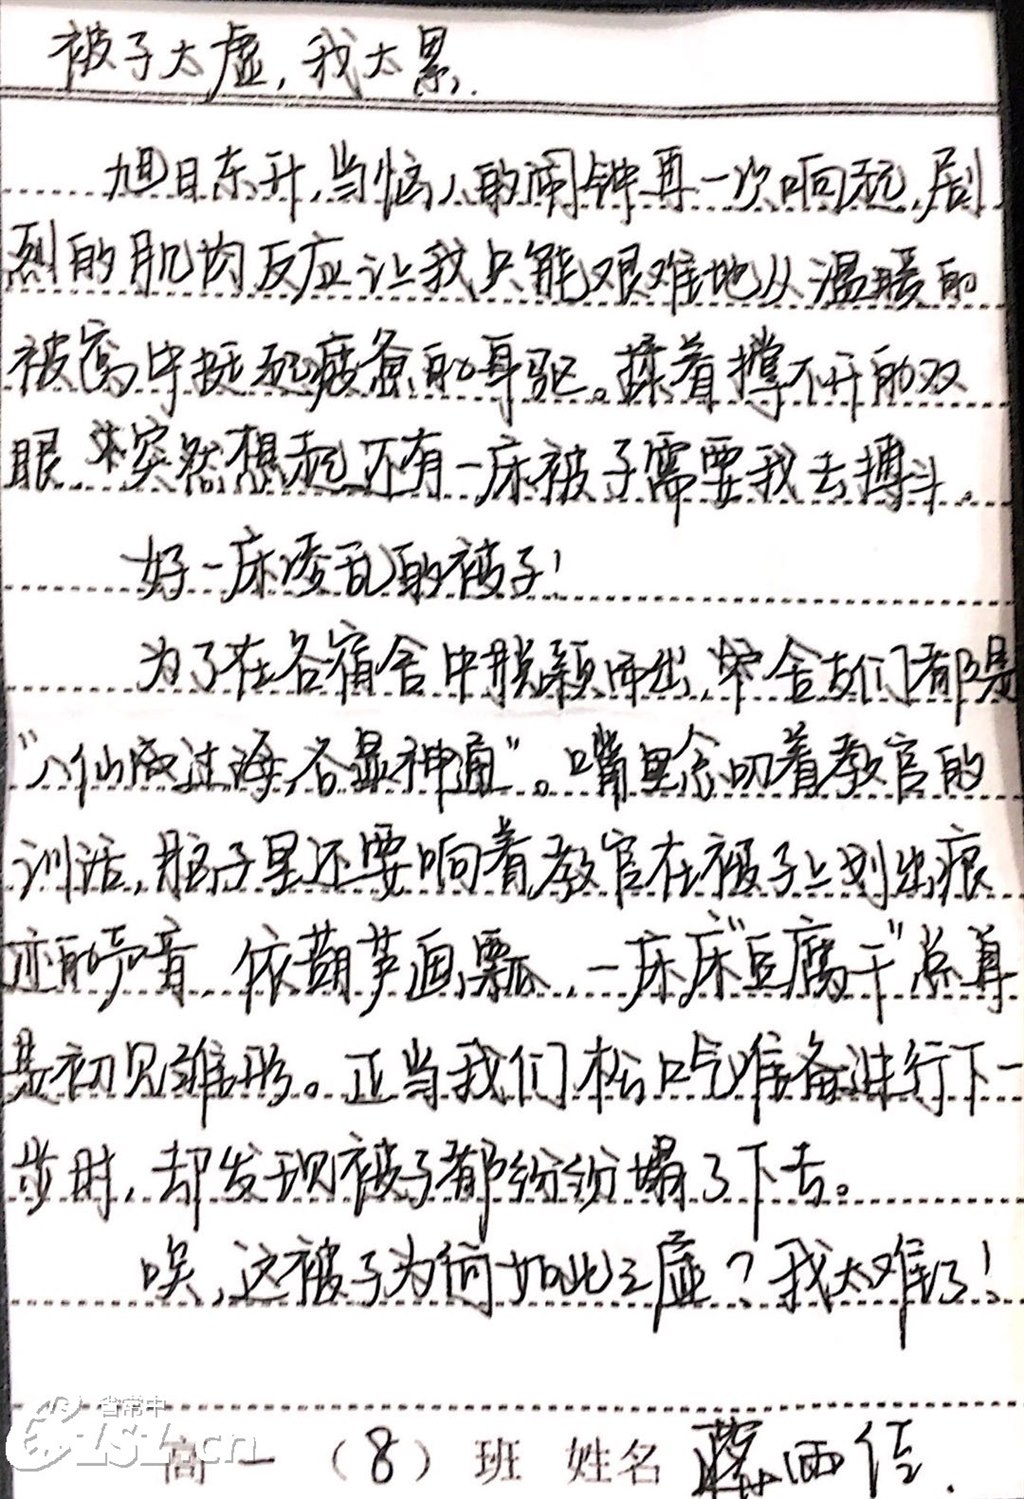 被子太虚，我太累.
旭日东升，当恼人的闹钟再一次响起，剧
烈的肌肉反应让我只能艰难地从温暖的
被窝中挺起疲惫的身驱。揉着撑不开的双
眼，突然想起还有一床被子需要我去搏斗。
好一床凌乱的被子！
为了在各宿舍中脱颖而出，舍友们都是
“八仙过海，各显神通”。嘴里念叨着教官的
训话，脑子里还要响着教官在被子上划出痕
迹的声音，依葫芦画瓢，一床床“豆腐干”总算
是初见雏形。正当我们松口气准备进行下一
步时，却发现被子都纷纷塌了下去。
唉，这被子为何如此之虚？我太难了！
省常中
CZSLZ.cn
高一（8）班 姓名 西佳.